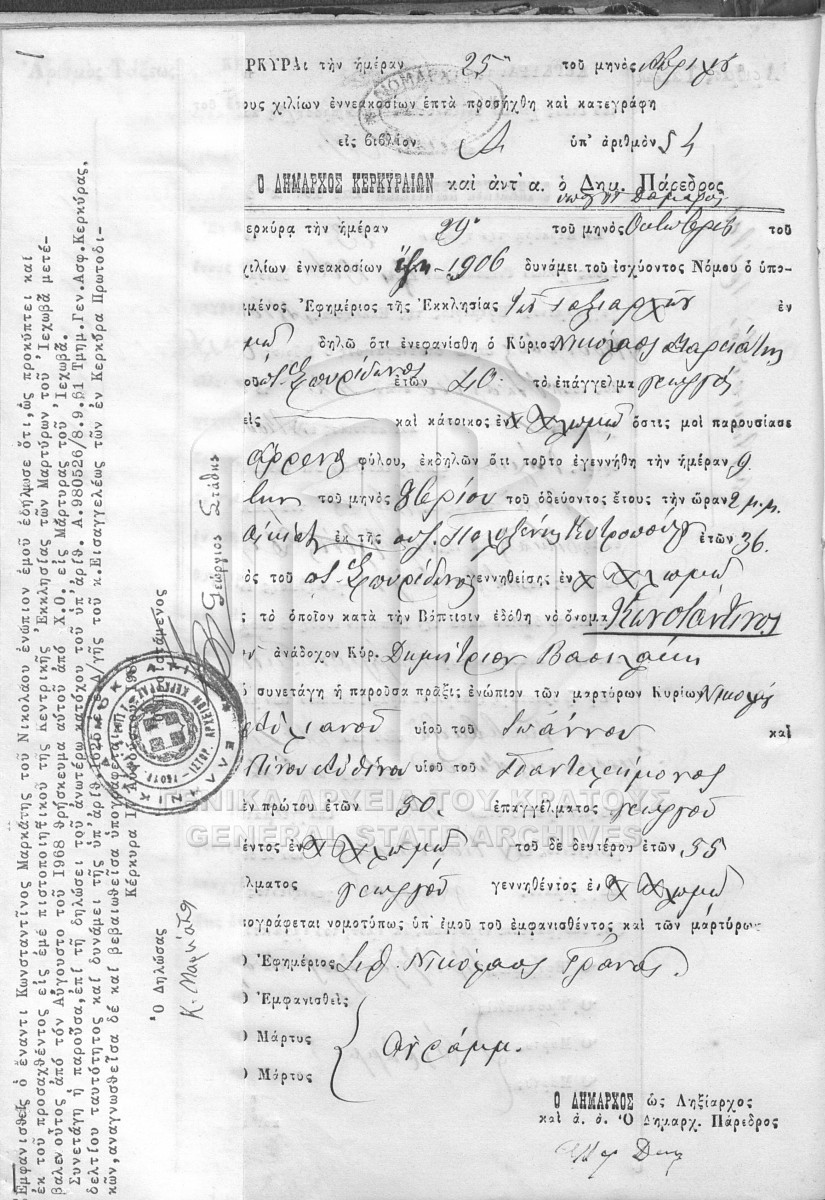 ΕΡΚΥΡΑι τὴν ἡμέραν 25 τοῦ μηνὸς Ἀπριλίου
ους χιλίων ἐννεακοσίων ἑπτὰ προσήχθη καὶ κατεγράφη
εἰς βιβλίον Α ὑπ' ἀριθμὸν 54
Ο ΔΗΜΑΡΧΟΣ ΚΕΡΚΥΡΑΙΩΝ καὶ ἀντ' α. ὁ Δημ. Πάρεδρος
ερκύρᾳ τὴν ἡμέραν 29 τοῦ μηνὸς Ὀκτωβρίου τοῦ
χιλίων ἐννεακοσίων ἕξη - 1906 δυνάμει τοῦ ἰσχύοντος Νόμου ὁ ὑπο-
μένος Ἐφημέριος τῆς Ἐκκλησίας τῶν Ταξιαρχῶν ἐν
δηλῶ ὅτι ἐνεφανίσθη ὁ Κύριος Νικόλαος Μαρκάτης
Σπυρίδωνος ἐτῶν 40 τὸ ἐπάγγελμα γεωργός
εἰς καὶ κάτοικος ἐν Χλωμῷ ὅστις μοὶ παρουσίασε
ἄρρεν φύλου, ἐκδηλῶν ὅτι τοῦτο ἐγεννήθη τὴν ἡμέραν 9
τοῦ μηνὸς 7βρίου τοῦ ὁδεύοντος ἔτους τὴν ὥραν 2 μ.μ.
ἐκ τῆς συζ. Πολυξένης ἐτῶν 36.
ὸς τοῦ Σπυρίδωνος γεννηθείσης ἐν Χλωμῷ
ς τὸ ὁποῖον κατὰ τὴν Βάπτισιν ἐδόθη τὸ ὄνομα Κωνσταντῖνος
ἀνάδοχον Κύρ. Δημήτριον Βασιλάκη
ὁ συνετάγη ἡ παροῦσα πρᾶξις ἐνώπιον τῶν μαρτύρων Κυρίων Νικολάου
υἱοῦ τοῦ Ἰωάννου καὶ
υἱοῦ τοῦ Παντελεήμονος
ἐν πρώτου ἐτῶν 50. ἐπαγγέλματος γεωργοῦ
έντος ἐν Χλωμῷ τοῦ δὲ δευτέρου ἐτῶν 55
λματος γεωργοῦ γεννηθέντος ἐν Χλωμῷ
ιογράφεται νομοτύπως ὑπ' ἐμοῦ τοῦ ἐμφανισθέντος καὶ τῶν μαρτύρων
Ο Ἐφημέριος Νικόλαος
Ο Ἐμφανισθεὶς
Ο Μάρτυς
Ο Μάρτυς
Ἀγράμμ.
Ο ΔΗΜΑΡΧΟΣ ὡς Ληξίαρχος
καὶ ἀ. ἀ. Ὁ Δημαρχ. Πάρεδρος
Ἐμφανισθεὶς ὁ ἔναντι Κωνσταντῖνος Μαρκάτης τοῦ Νικολάου ἐνώπιον ἐμοῦ ἐδήλωσε ὅτι,ὡς προκύπτει καὶ
ἐκ τοῦ προσαχθέντος εἰς ἐμὲ πιστοποιητικοῦ τῆς Κεντρικῆς Ἐκκλησίας τῶν Μαρτύρων τοῦ Ἰεχωβᾶ μετέ-
βαλεν οὗτος ἀπὸ τὸν Αὔγουστο τοῦ 1968 θρήσκευμα αὐτοῦ ἀπὸ Χ.Ο. εἰς Μάρτυρας τοῦ Ἰεχωβᾶ.
Συνετάγη ἡ παροῦσα,ἐπὶ τῇ δηλώσει τοῦ ἀνωτέρω κατόχου τοῦ ὑπ'ἀριθ. Α.980526/8.9.61 Τμημ.Γεν.Ἀσφ.Κερκύρας,
δελτίου ταυτότητος καὶ δυνάμει τῆς ὑπ'ἀριθ. 1625 γῆς τοῦ κ.Εἰσαγγελέως τῶν ἐν Κερκύρᾳ Πρωτοδι-
κῶν,ἀναγνωσθεῖσα δὲ καὶ βεβαιωθεῖσα ὑπογράφεται
Κέρκυρα
Ὁ Δηλώσας
Κ. Μαρκάτης
Γεώργιος Στάθης
ΓΕΝΙΚΑ ΑΡΧΕΙΑ ΤΟΥ ΚΡΑΤΟΥΣ
GENERAL STATE ARCHIVES